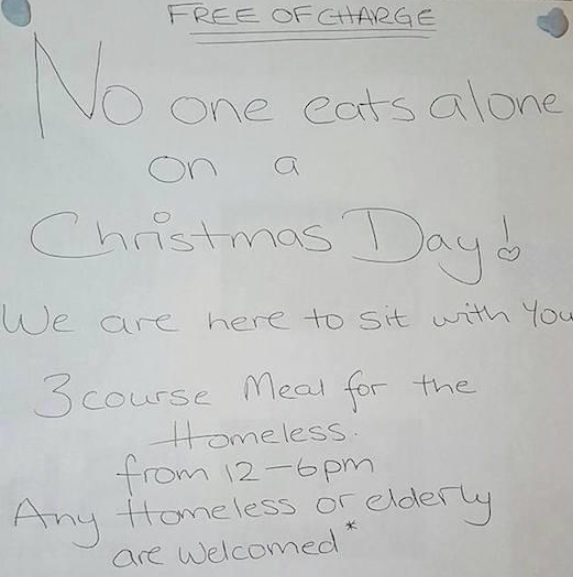 FREE OF CHARGE
No one eats alone
on a
Christmas Day!
We are here to sit with You
3 course Meal for the
Homeless.
from 12-6pm
Any Homeless or elderly
are welcomed*